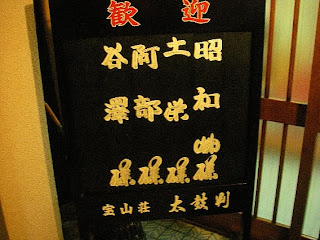 歓迎
昭和 様
土栄 様
阿部 様
谷澤 様
宝山荘 太鼓判